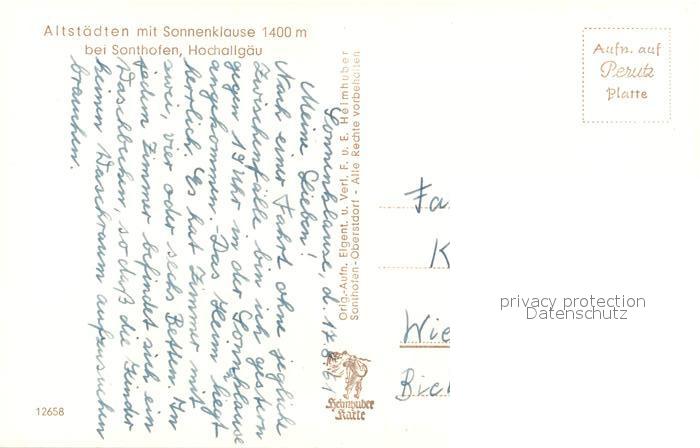 Altstädten mit Sonnenklause 1400 m
bei Sonthofen, Hochallgäu
Sonnenklause, d. 17.8.61
Meine Lieben!
Nach einer Fahrt ohne jegliche
Zwischenfälle bin ich gestern
gegen 19 Uhr in der Sonnklause
angekommen. - Das Heim liegt
herrlich. Es hat Zimmer mit
zwei, vier oder sechs Betten. In
jedem Zimmer befindet sich ein
Waschbecken, so daß die Kinder
keinen Waschraum aufzusuchen
brauchen.
Orig.-Aufn. Eigent. u. Verl. F. u. E. Heimhuber
Sonthofen-Oberstdorf - Alle Rechte vorbehalten
Heimhuber
Karte
12658
Aufn. auf
Perutz
Platte
Fa
K
Wie
privacy protection
Datenschutz